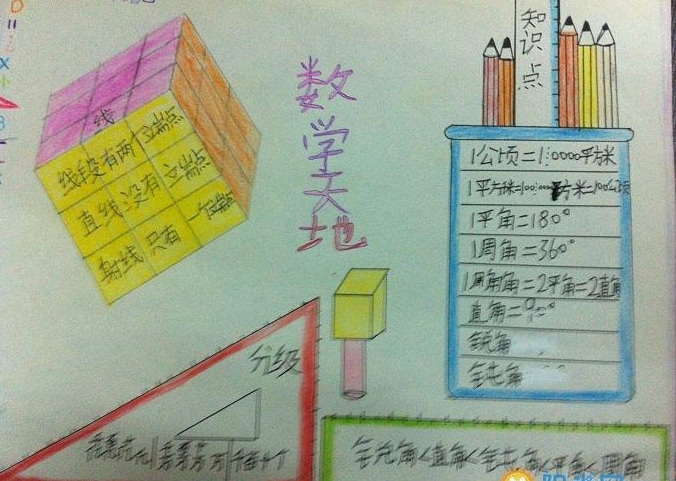 数学天地
线
线段 有两 端点
直线 没有 端点
射线 只有 一个端点
知识点
1公顷=10000平方米
1平角=180°
1周角=360°
1周角=2平角=2直角
直角=90°
锐角
钝角
分级
锐角<直角<钝角<平角<周角